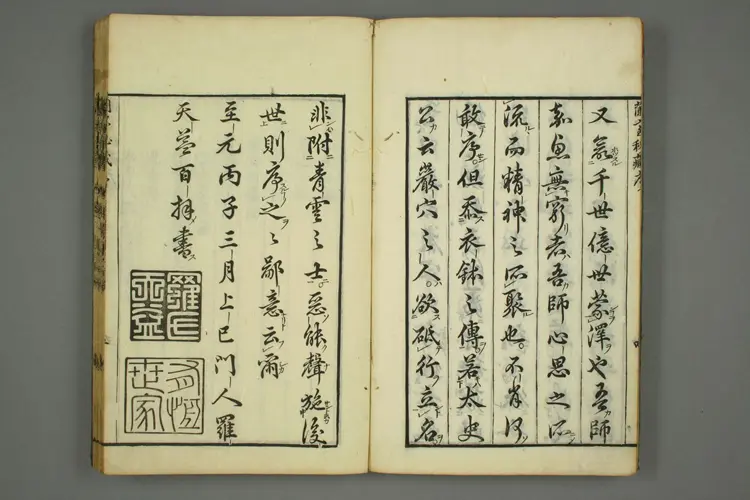 蘭室秘藏序
又千世億世蒙澤也吾師
嘉惠無窮者吾師心思之所
流而精神之所聚也不肖何
敢序但忝衣鉢之傳若太史
公云巖穴之人欲砥行立名
非附青雲之士惡能聲施後
世則序之之鄙意云爾
至元丙子三月上巳門人羅
天益百拜書
羅氏天益
世家